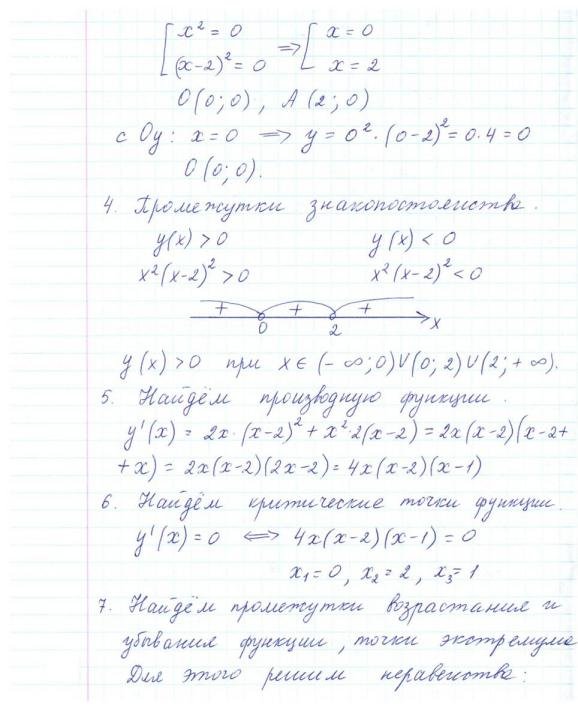 [ x² = 0
(x-2)² = 0 ⇒ [ x = 0
x = 2
O(0; 0), A(2; 0)
с Oy: x = 0 ⇒ y = 0²·(0-2)² = 0·4 = 0
O(0; 0).
4. Промежутки знакопостоянства.
y(x) > 0 y(x) < 0
x²(x-2)² > 0 x²(x-2)² < 0
+ + +
0 2 x
y(x) > 0 при x ∈ (-∞; 0)∪(0; 2)∪(2; +∞).
5. Найдём производную функции.
y'(x) = 2x·(x-2)² + x²·2(x-2) = 2x(x-2)(x-2+
+x) = 2x(x-2)(2x-2) = 4x(x-2)(x-1)
6. Найдём критические точки функции.
y'(x) = 0 ⇔ 4x(x-2)(x-1) = 0
x₁ = 0, x₂ = 2, x₃ = 1
7. Найдём промежутки возрастания и
убывания функции, точки экстремума
Для этого решим неравенства: